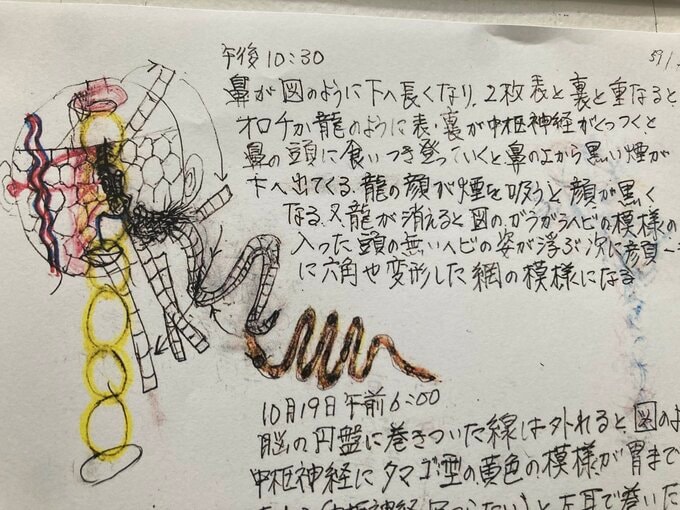 午後10:30
鼻が図のように下へ長くなり、2枚表と裏と重なると
オロチか龍のように表・裏が中枢神経がくっつくと
鼻の頭に食いつき登っていくと鼻の上から黒い煙が
下へ出てくる.龍の顔が煙を吸うと顔が黒く
なる.又龍が消えると図のガラガラヘビの模様の
入った頭の無いヘビの姿が浮ぶ次に顔一
に六角や変形した網の模様になる
10月19日午前6:00
脳の円盤に巻きついた線は外れると図のよ
中枢神経にタマゴ型の黄色の模様が胃まで